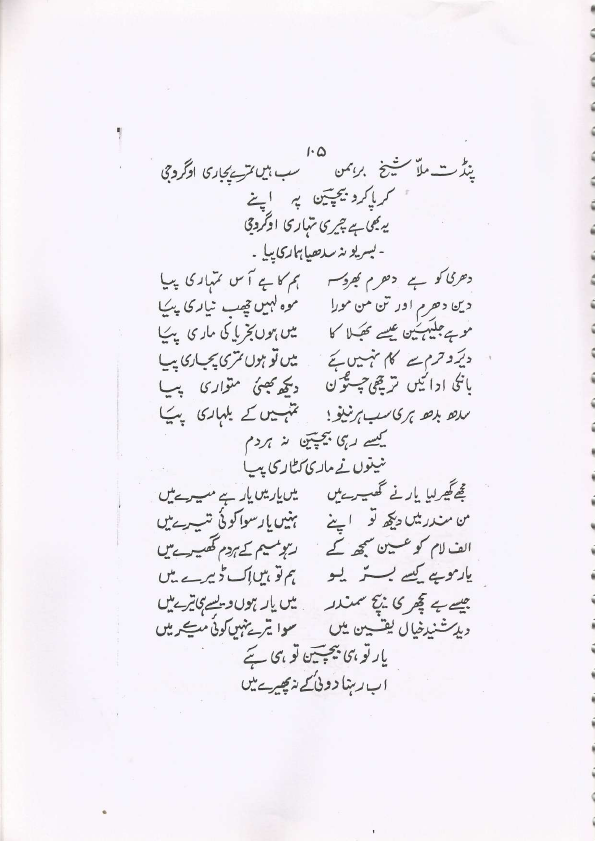 ۱۰۵
پنڈت ملّا شیخ برہمن سب ہیں تمرے پجاری او گروجی
کرپا کرو بیچین پہ اپنے
یہ بھی ہے چیری تہاری او گروجی
بسریو نہ سدھیا ہماری پیا ۔
دھری کو ہے دھرم بھروسہ ہم کا ہے آس تمہاری پیا
دین دھرم اور تن من مورا موہ لہیں چھب نیاری پیا
موہے جلیہیں عیسے بھلا کا میں ہوں بخریا کی ماری پیا
دیر و حرم سے کام نہیں ہے میں تو ہوں تمری پجاری پیا
بانکی ادائیں ترچھی چتون دیکھ بھئی متواری پیا
سدھ بدھ ہری سب ہر نیو! تمہیں کے بلہاری پیا
کیسے رہی بیچین نہ ہر دم
نینوں نے ماری کٹاری پیا
مجھے گھیر لیا یار نے گھیرے میں میں یار میں یار ہے میرے میں
من مندر میں دیکھ تو اپنے نہیں یار سوا کوئی تیرے میں
الف لام کو عین سمجھ کے رہو میم کے ہر دم گھیرے میں
یار موہے کیسے بسریو ہم تو ہیں اک ڈیرے میں
جیسے ہے مچھری بیچ سمندر میں یار ہوں ویسے ہی تیرے میں
دید شنید خیال یقین میں سوا تیرے نہیں کوئی میرے میں
یار تو ہی بیچین تو ہی ہے
اب رہنا دوئی کے نہ پھیرے میں